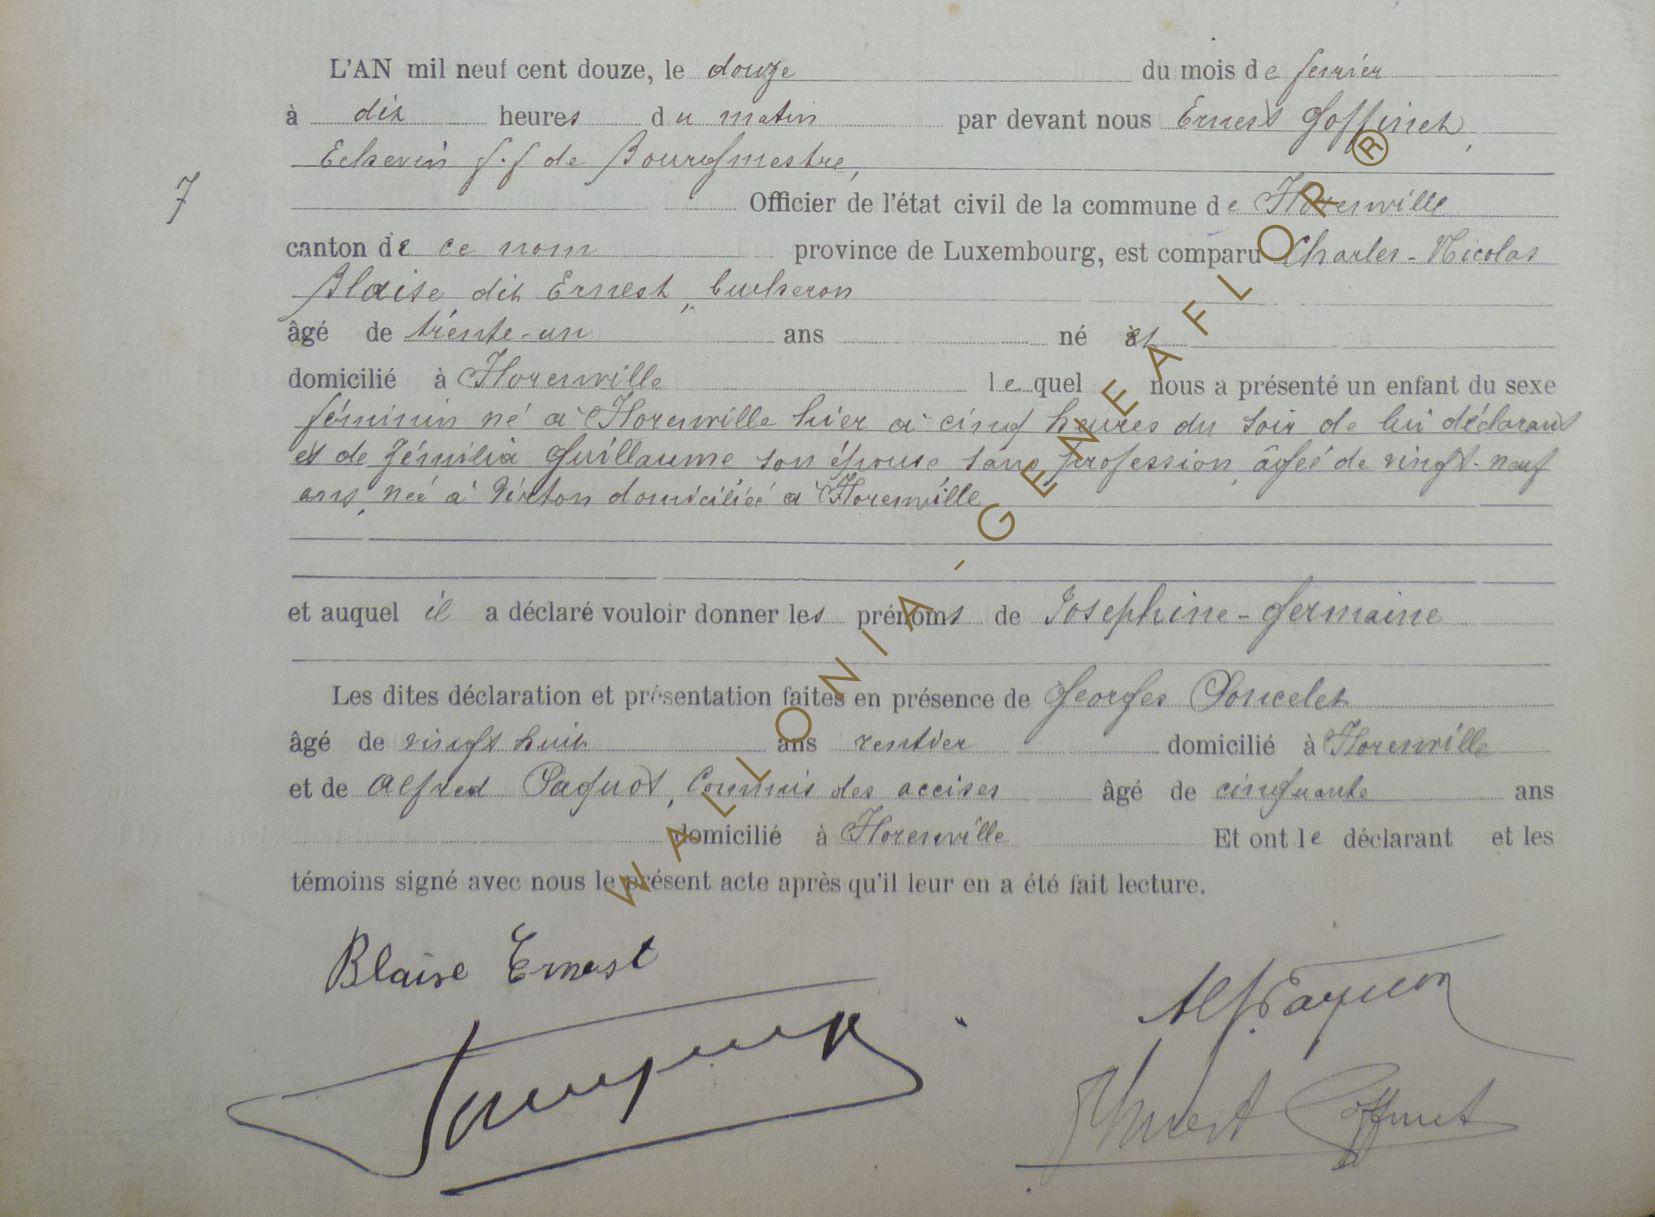 L'AN mil neuf cent douze, le douze du mois de fevrier
à dix heures du matin par devant nous Ernest Goffinet,
Echevin f.f de Bourgmestre,
7
Officier de l'état civil de la commune de Florenville
canton de ce nom province de Luxembourg, est comparu Charles-Nicolas
Blaise dit Ernest, bucheron
âgé de trente-un ans né et
domicilié à Florenville lequel nous a présenté un enfant du sexe
féminin né à Florenville hier à cinq heures du soir de lui déclarant
et de Guillaume son épouse sans profession, âgée de vingt-neuf
ans, née à Virton domiciliée à Florenville
et auquel il a déclaré vouloir donner les prénoms de Josephine-Germaine
Les dites déclaration et présentation faites en présence de Georges Poncelet
âgé de vingt huit ans rentier domicilié à Florenville
et de Alfred Paquot, Commis des accises âgé de cinquante ans
domicilié à Florenville Et ont le déclarant et les
témoins signé avec nous le présent acte après qu'il leur en a été fait lecture.
Blaise Ernest
WALLONIA-GENEAFLOR®